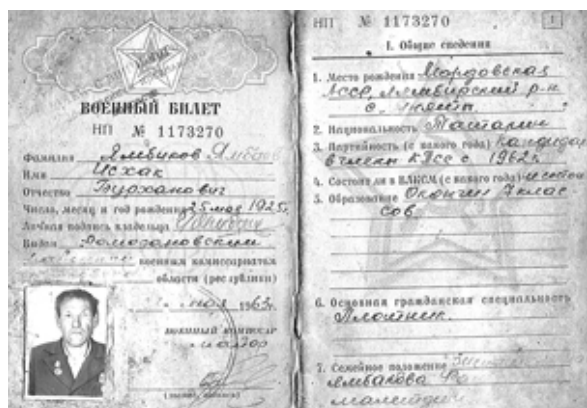 ВОЕННЫЙ БИЛЕТ
НП № 1173270
Фамилия Ямбиков
Имя Исхак
Отчество Бурханович
Число, месяц и год рождения 25 мая 1925г.
Личная подпись владельца
Выдан Ромодановским
военным комиссариатом
области (республики)
мая 1963г.
военный комиссар
майор
НП № 1173270
1
I. Общие сведения
1. Место рождения Мордовская
АССР, Лямбирский р-н
с.
2. Национальность Татарин
3. Партийность (с какого года) Кандидат
в члены КПСС с 1962г.
4. Состоял ли в ВЛКСМ (с какого года) не состоял
5. Образование Окончил 7 клас
сов.
6. Основная гражданская специальность
Плотник.
7. Семейное положение
Ямбакова